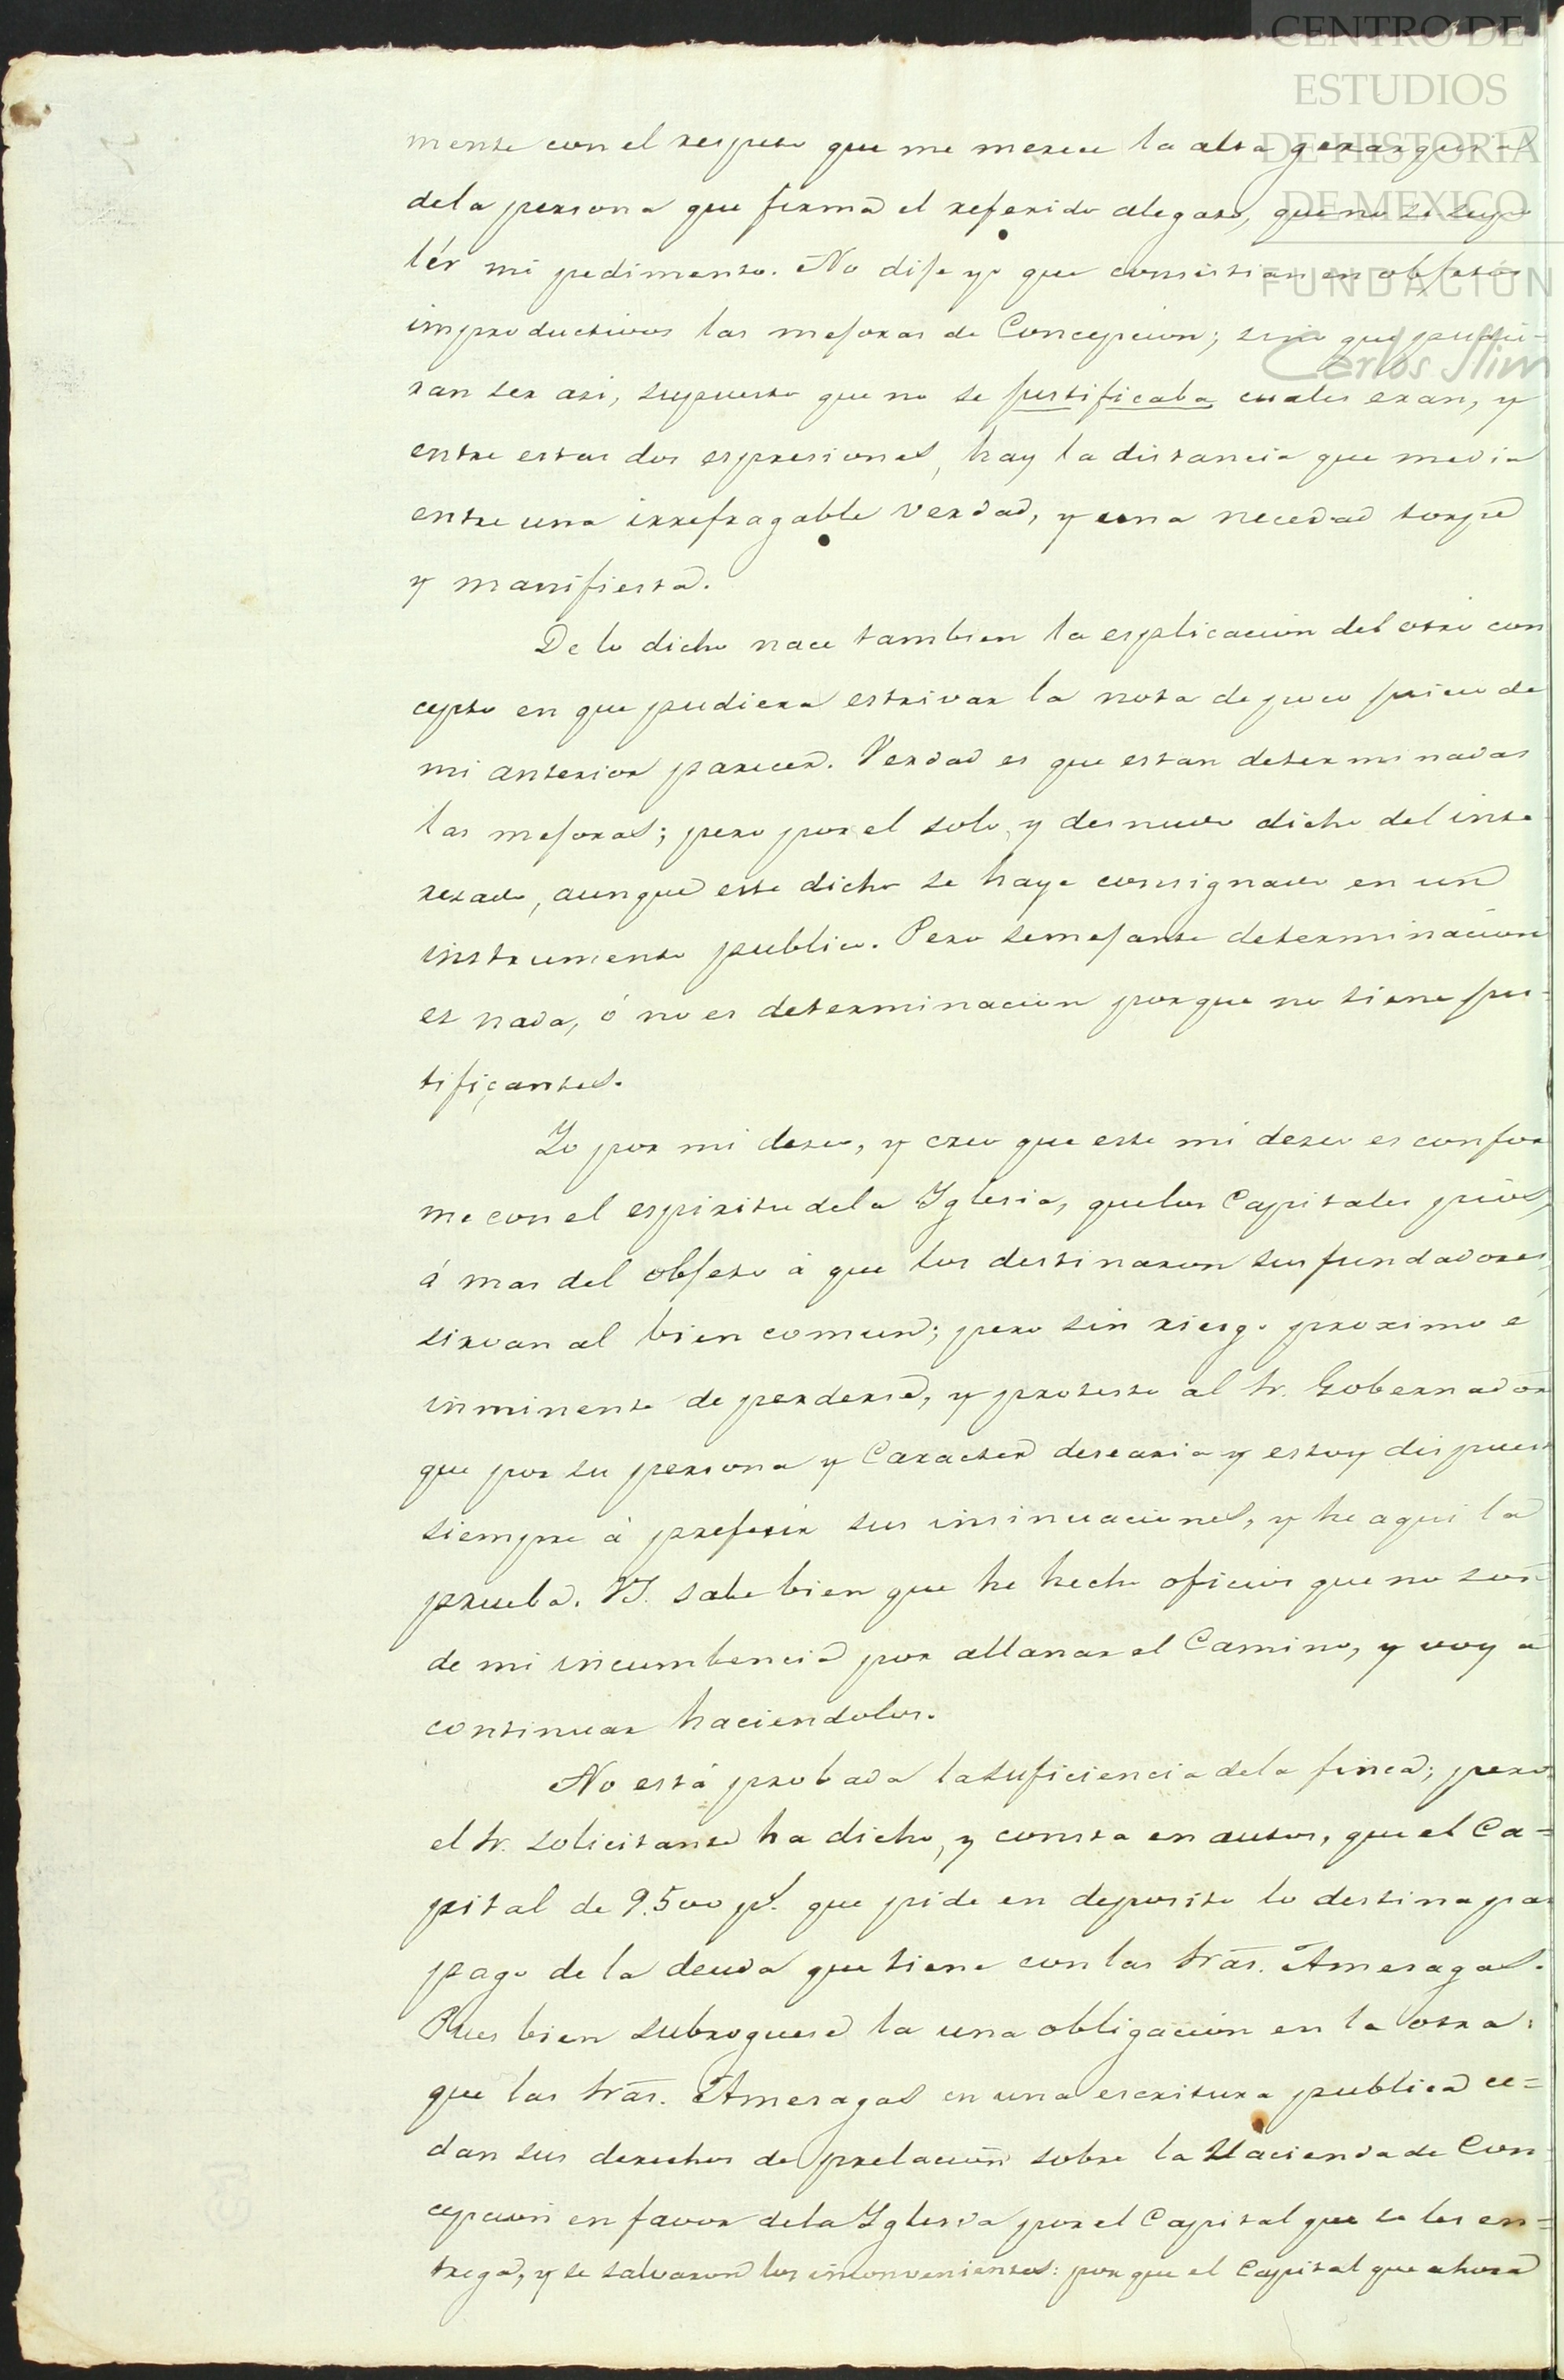 CENTRO DE
ESTUDIOS
DE HISTORIA
DE MEXICO
FUNDACIÓN
Carlos Slim
mente con el respeto que me merece la alta gerarquia
dela persona que firma el referido alegato, que no se supo
lér mi pedimento. No dije yo que consistian en objetos
improductivos las mejoras de Concepcion; sino que pudie-
ran ser asi, supuesto que no se justificaba cuales eran, y
entre estas dos espresiones, hay la distancia que media
entre una irrefragable verdad, y una necedad torpe
y manifiesta.
De lo dicho nace tambien la esplicacion del otro con
cepto en que pudiera estrivar la nota de poco juicio de
mi anterior parecer. Verdad es que estan determinadas
las mejoras; pero por el solo, y desnudo dicho del inte
resado, aunque este dicho se haya consignado en un
instrumento publico. Pero semejante determinacion
es nada, ó no es determinacion porque no tiene jus-
tificantes.
Yo por mi deseo, y creo que este mi deseo es confor
me con el espiritu dela Yglesia, quelos Capitales pios,
á mas del objeto á que los destinaron sus fundadores,
sirvan al bien comun; pero sin riesgo proximo e
inminente de perderse, y protesto al Sr. Gobernador
que por su persona y Caracter desearia y estoy dispuesto
siempre á preferir sus insinuaciones, y he aqui la
prueba. VS. sabe bien que he hecho oficios que no son
de mi incumbencia por allanar el Camino, y voy a
continuar haciendolos.
No está probada lasuficiencia dela finca; pero
el Sr. solicitante ha dicho, y consta en autos, que el Ca=
pital de 9.500 ps. que pide en deposito lo destina pa
pago de la deuda que tiene con las Sras. Amesagas.
Pues bien subroguese la una obligacion en la otra:
que las Sras. Amesagas en una escritura publica ce=
dan sus derechos de prelacion sobre la Hacienda de Con
cepcion en favor dela Yglesia por el Capital que se les en=
trega, y se salvaron los inconvenientes: porque el Capital que ahora